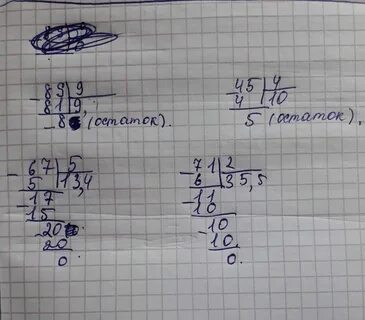 - 89 | 9
81 | 9,
- 8 (остаток).
- 45 | 4
4 | 10
5 (остаток).
- 67 | 5
5 | 13,4
- 17
15
- 20
20
0
- 71 | 2
6 | 35,5
- 11
10
- 10
10
0.